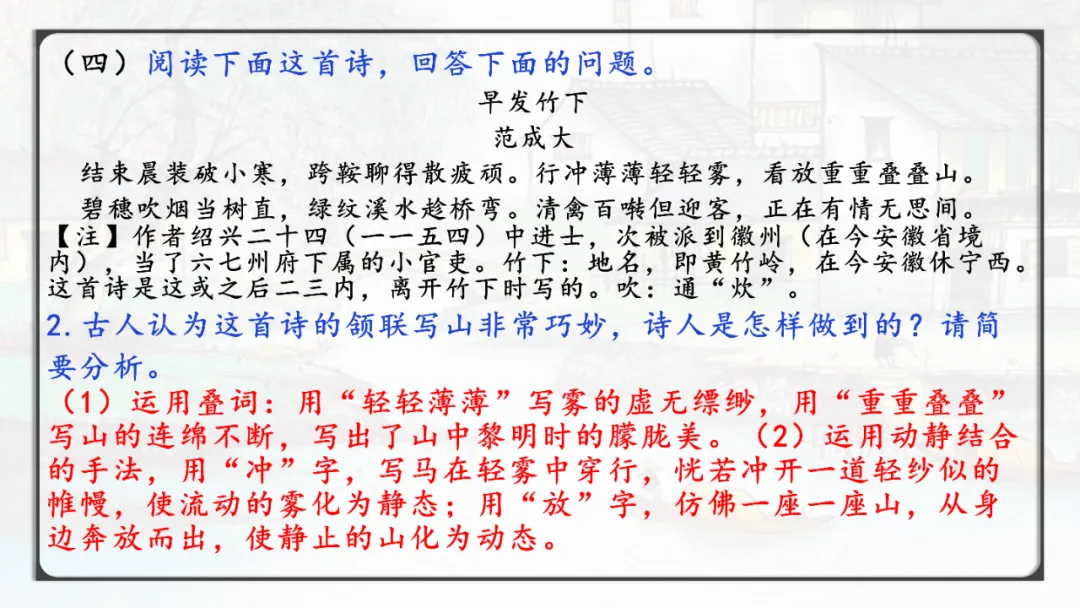 （四）阅读下面这首诗，回答下面的问题。
早发竹下
范成大
结束晨装破小寒，跨鞍聊得散疲顽。行冲薄薄轻轻雾，看放重重叠叠山。
碧穗吹烟当树直，绿纹溪水趁桥弯。清禽百啭但迎客，正在有情无思间。
【注】作者绍兴二十四（一一五四）中进士，次被派到徽州（在今安徽省境
内），当了六七州府下属的小官吏。竹下：地名，即黄竹岭，在今安徽休宁西。
这首诗是这或之后二三内，离开竹下时写的。吹：通“炊”。
2.古人认为这首诗的颔联写山非常巧妙，诗人是怎样做到的？请简
要分析。
（1）运用叠词：用“轻轻薄薄”写雾的虚无缥缈，用“重重叠叠”
写山的连绵不断，写出了山中黎明时的朦胧美。（2）运用动静结合
的手法，用“冲”字，写马在轻雾中穿行，恍若冲开一道轻纱似的
帷幔，使流动的雾化为静态；用“放”字，仿佛一座一座山，从身
边奔放而出，使静止的山化为动态。